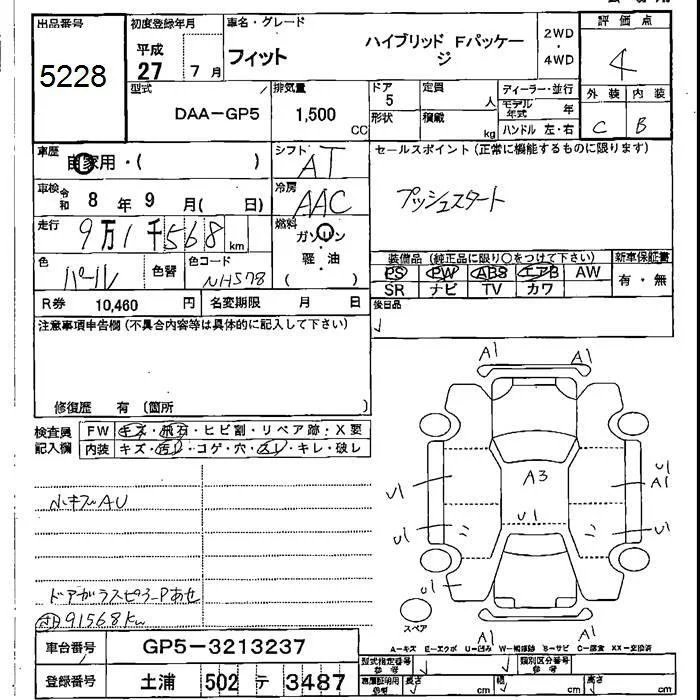 出品番号
5228
初度登録年月
平成
27 7 月
車名・グレード
フィット
ハイブリッド Fパッケージ
2WD
・
4WD
評価点
4
外装 内装
C B
型式
DAA-GP5
排気量
1,500
CC
ドア
5
形状
定員
人
積載
kg
ディーラー・並行
モデル年式 年
ハンドル 左・右
車歴
自家用・( )
シフト
AT
セールスポイント(正常に機能するものに限ります)
プッシュスタート
車検 令和 8 年 9 月( 日)
冷房
AAC
走行
9万1千568 km
燃料
ガソリン
・
軽 油
・
( )
色
パール
色替
色コード
NH578
装備品(純正品に限り〇をつけて下さい)
PS PW ABS エアB AW
SR ナビ TV カワ
新車保証書
有・無
R券 10,460 円
名変期限 月 日
後日品
注意事項申告欄(不具合内容等は具体的に記入して下さい)
修復歴 有(箇所 )
検査員記入欄
FW キズ・飛石・ヒビ割・リペア跡・X要
内装 キズ・汚レ・コゲ・穴・スレ・キレ・破レ
小キズAU
ドアガラスピラーPあせ
91568km
A1 A1
A3
U1
U1
A1
U1
U1
U1
U1
A1
A1
スペア
A-キズ E-エクボ U-凹み W-補修跡 S-サビ C-腐食 XX-交換済
車台番号
GP5-3213237
登録番号
土浦 502 テ 3487
型式指定番号
参考
類別区分番号
参考
長さ cm
幅 cm
高さ cm